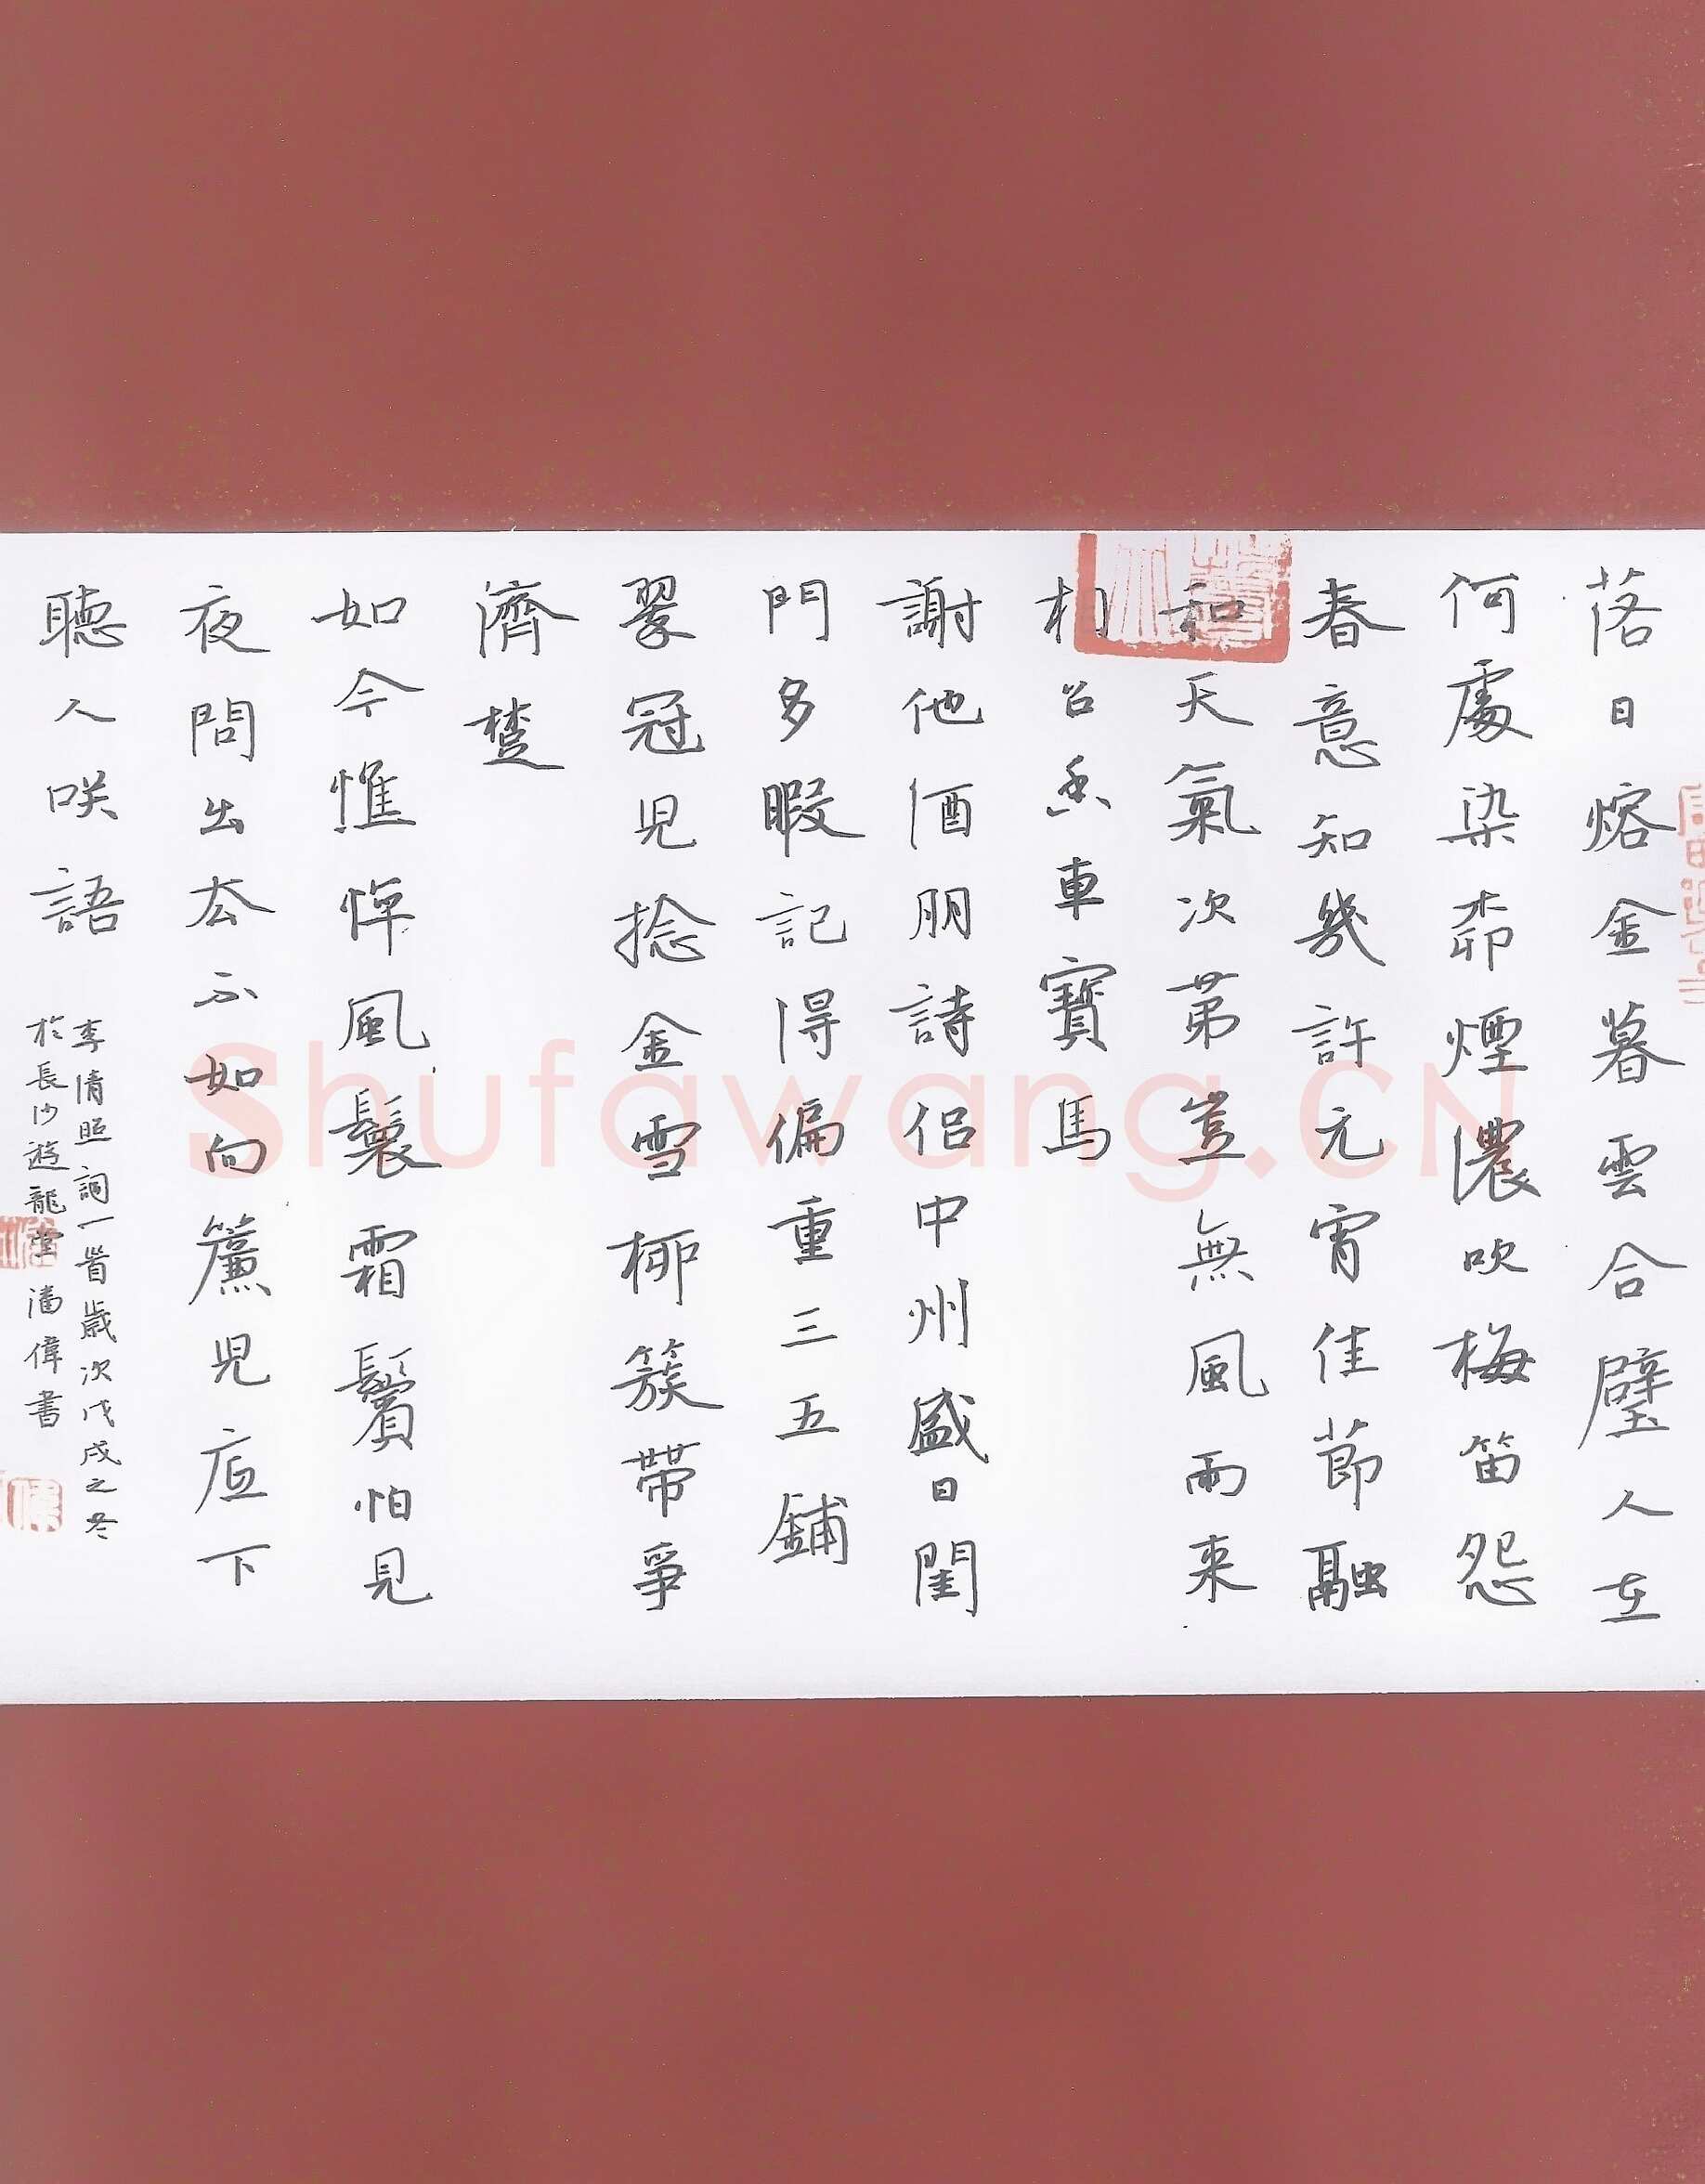 落日熔金暮雲合璧人在
何處染柳煙濃吹梅笛怨
春意知幾許元宵佳節融
和天氣次第豈無風雨來
相召香車寶馬
謝他酒朋詩侶中州盛日閨
門多暇記得偏重三五鋪
翠冠兒捻金雪柳簇帶爭
濟楚
如今憔悴風鬟霜鬢怕見
夜間出去不如向簾兒底下
聽人咲語
李清照詞一首歲次戊戌之冬
於長沙遊龍堂潘偉書
Shufawang.CN